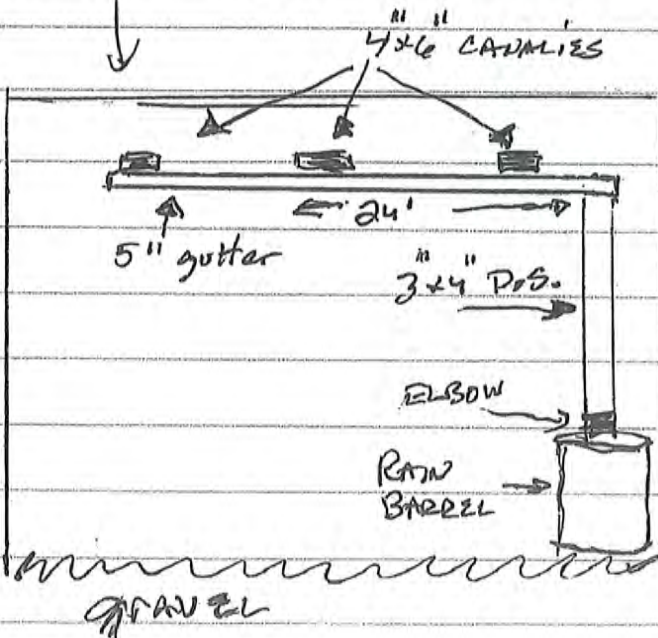 4"x6" CANALIES
24'
5" gutter
3"x4" D.S.
ELBOW
RAIN
BARREL
GRAVEL